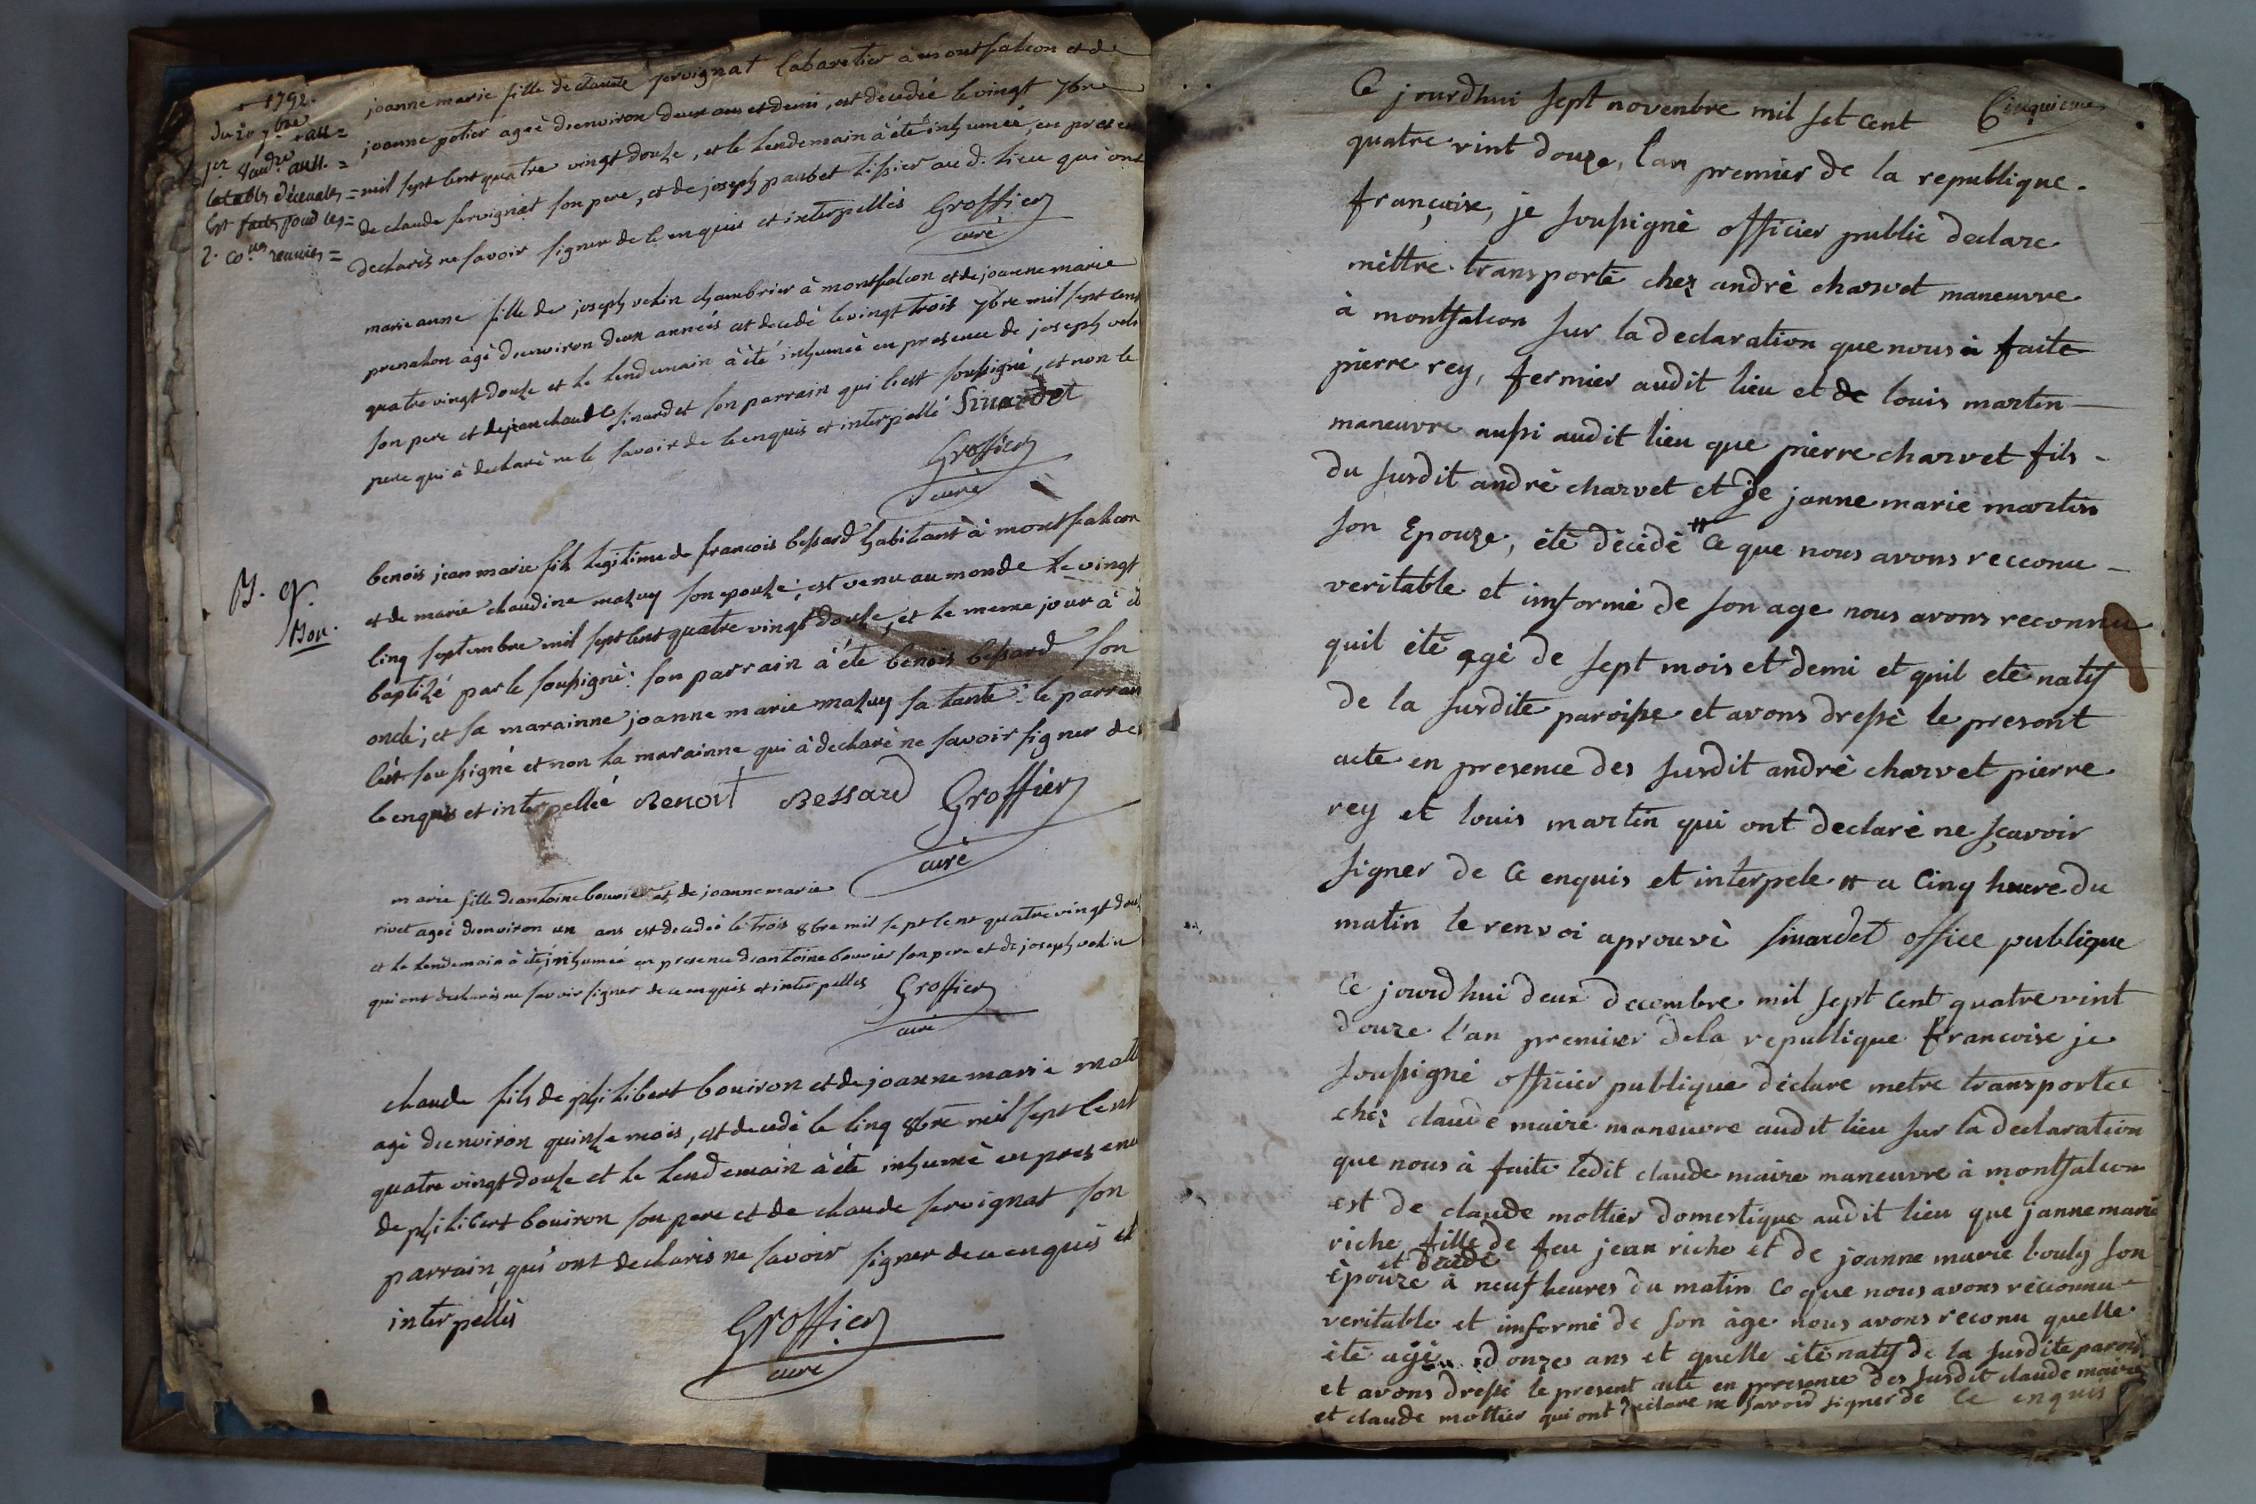 1792.
du 20 7bre
lestables décenales =
est faite pour les =
2. co.nes reunies =
joanne marie fille de claude servignat Cabaretier à montfalcon et de
joanne potier ageé denviron deux ans et demi, est decedeé le vingt 7bre
mil sept cent quatre vingt douze, et le lendemain à été inhumeé, en presen
de claude servignat son pere, et de joseph paubet tissier aud. lieu qui ont
declarés ne savoir signer de ce enquis et interpellés Groffier
curé
marie anne fille de joseph velin chambrier à montfalcon et de joanne marie
prenalon agé denviron deux anneés est decedé le vingt trois 7bre mil sept cent
quatre vingt douze et le lendemain à été inhumeé en presence de joseph veli
son pere et de jean claude sinardet son parrain qui s'est soussigné, et non le
pere qui à declaré ne le savoir de ce enquis et interpellé Sinardet
Groffier
curé
B. g.
Bon.
benois jean marie fils legitime de francois bessard habitant à montfalcon
et de marie claudine mazuy son epouze, est venu au monde le vingt
cinq septembre mil sept cent quatre vingt douze, et le meme jour à é
baptizé par le soussigné: son parrain à été benois bessard son
oncle, et sa marainne joanne marie mazuy sa tante: le parrain
s'est soussigné et non la marainne qui à declaré ne savoir signer de
ce enquis et interpellée Benoit Bessard Groffier
curé
marie fille dantoine bouvier et de joanne marie
rivet ageé denviron un ans est decedeé le trois 8bre mil sept cent quatre vingt douz
et le lendemain à été inhumeé en presence dantoine bouvier son pere et de joseph velin
qui ont declarés ne savoir signer de ce enquis et interpellés Groffier
curé
claude fils de philibert bouiron et de joanne marie
agé denviron quinze mois, est decedé le cinq 8bre mil sept cent
quatre vingt douze et le lendemain à été inhumé en presence
de philibert bouiron son pere et de claude servignat son
parrain, qui ont declarés ne savoir signer de ce enquis et
interpellés Groffier
curé
Cinquieme
Ce jourdhui sept novenbre mil set cent
quatre vint douze, l'an premier de la republique
françoise, je soussigné officier public declare
mêttre transporté chez andré charvet maneuvre
à montfalcon sur la declaration que nous à faite
pierre rey, fermier audit lieu et de louis martin
maneuvre aussi audit lieu que pierre charvet fils
du susdit andré charvet et de janne marie martin
son Epouze, été décédé # Ce que nous avons recconu
veritable et informé de son age nous avons reconnu
quil été agé de sept mois et demi et quil eté natif
de la susdite paroisse et avons dressé le present
acte en presence des susdit andré charvet pierre
rey et louis martin qui ont declaré ne sçavoir
signer de Ce enquis et interpele # a Cinq heure du
matin le renvoi aprouvé sinardet office publique
Ce jourdhui deux decembre mil sept Cent quatre vint
douze l'an premier dela republique francoise je
soussigné officier publique déclare metre transportee
chez claude maire maneuvre audit lieu sur la declaration
que nous à faite ledit claude maire maneuvre à montfalcon
est de claude mottier domestique audit lieu que janne marie
riche fille de feu jean riche et de joanne marie bouly son
et décédé
épouze à neuf heures du matin Ce que nous avons reconnu
veritable et informé de son âge nous avons reconu quelle
été agé donzes ans et quelle été natif de la susdite parois
et avons dressé le present acte en presence des susdit claude maire
et claude mottier qui ont declare ne savoir signer de Ce enquis